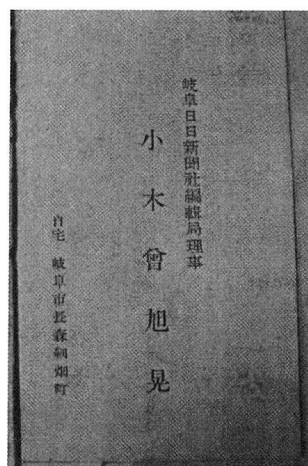 岐阜日日新聞社編輯局理事
小木曾旭晃
自宅 岐阜市長森細畑町